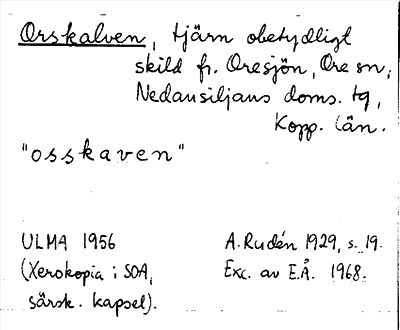 Orskalven, tjärn obetydligt
skild fr. Oresjön, Ore sn,
Nedansiljans doms. tg,
Kopp. län.
"osskaven"
ULMA 1956
(Xerokopia i SOA,
särsk. kapsel).
A. Rudén 1929, s. 19.
Exc. av E.Å. 1968.